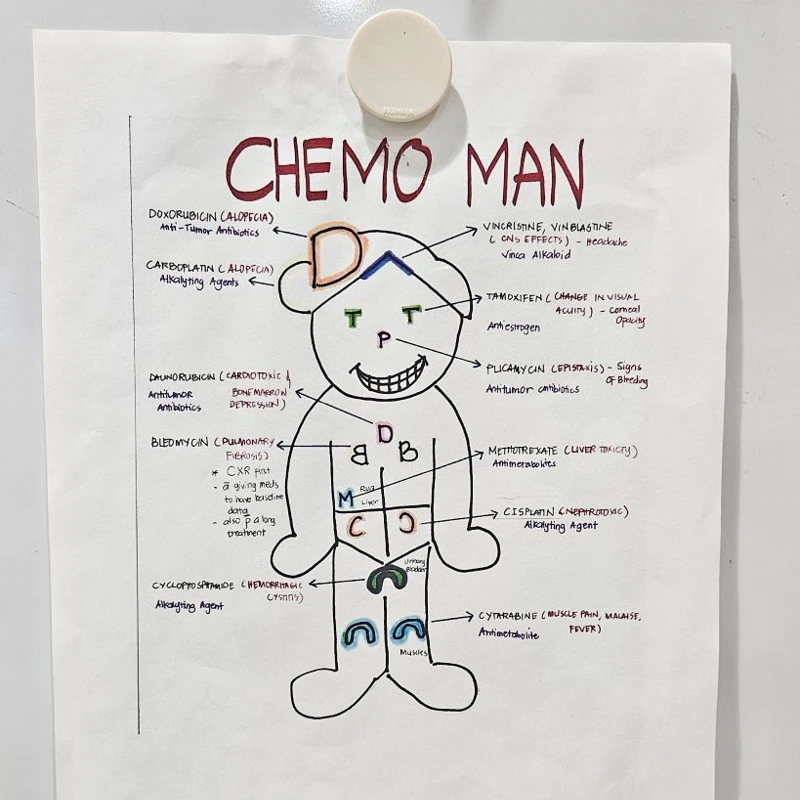 CHEMO MAN
DOXORUBICIN (ALOPECIA)
Anti-Tumor Antibiotics
CARBOPLATIN (ALOPECIA)
Alkalyting Agents
DAUNORUBICIN (CARDIOTOXIC &
Antitumor BONEMARROW
Antibiotics DEPRESSION)
BLEOMYCIN (PULMONARY
FIBROSIS)
* CXR first
- a̅ giving meds
to have baseline
data
- also p̅ a long
treatment
CYCLOPTOSPHAMIDE (HEMORRHAGIC
CYSTITIS)
Alkalyting Agent
D
T T
P
D
B B
M RUQ
Liver
C C
Urinary
Bladder
Muscles
VINCRISTINE, VINBLASTINE
(CNS EFFECTS) - Headache
Vinca Alkaloid
TAMOXIFEN (CHANGE IN VISUAL
ACUITY) - Corneal
Opacity
Antiestrogen
PLICAMYCIN (EPISTAXIS) - Signs
Of Bleeding
Antitumor antibiotics
METHOTREXATE (LIVER TOXICTY)
Antimetabolites
CISPLATIN (NEPHROTOXIC)
Alkalyting Agent
CYTARABINE (MUSCLE PAIN, MALAISE,
FEVER)
Antimetabolite